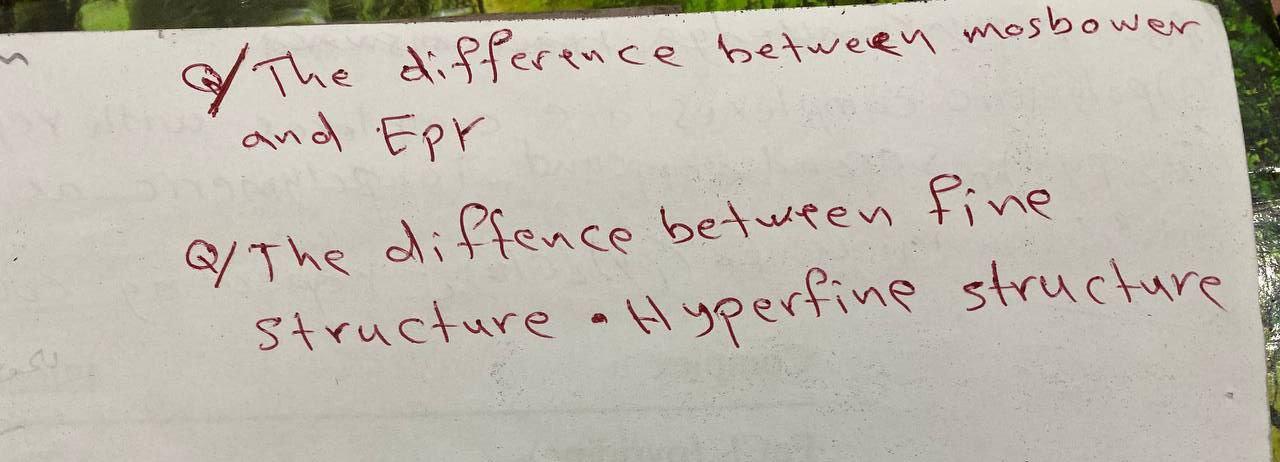 Q/ The difference between mosbower
and Epr
Q/ The diffence between fine
structure • Hyperfine structure